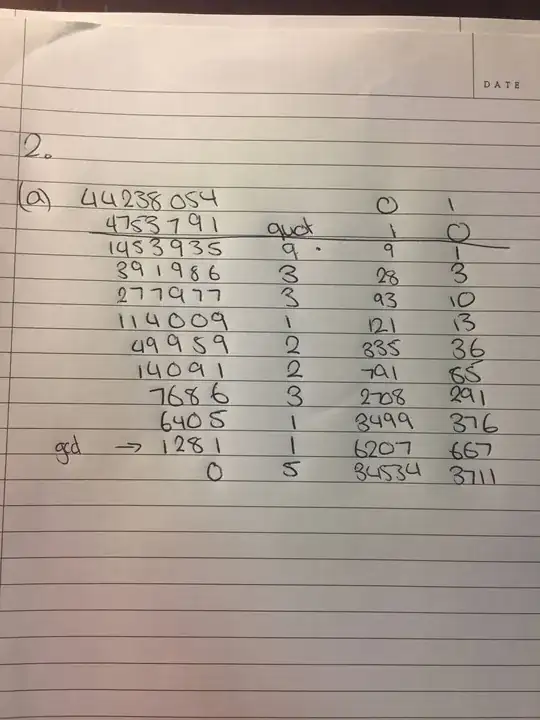 DATE
2.
(a) 44238054 0 1
4753791 quot 1 0
1453935 9 9 1
391986 3 28 3
277977 3 93 10
114009 1 121 13
49959 2 335 36
14091 2 791 85
7686 3 2708 291
6405 1 3499 376
gcd → 1281 1 6207 667
0 5 34534 3711